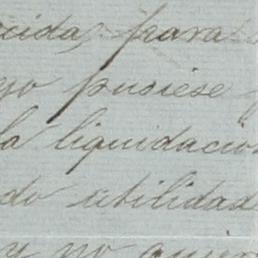 cida, para
yo pusiese
la liquidacion
do utilidad
y no quier